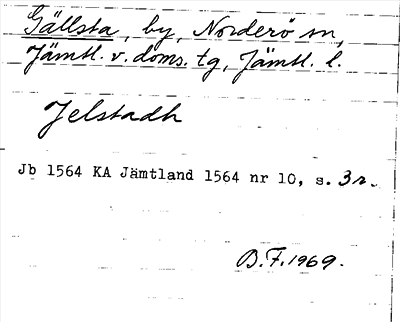 Gällsta, by, Norderö sn,
Jämtl. v. doms. tg, Jämtl. l.
Jelstadh
Jb 1564 KA Jämtland 1564 nr 10, s. 3r.
B.F. 1969.